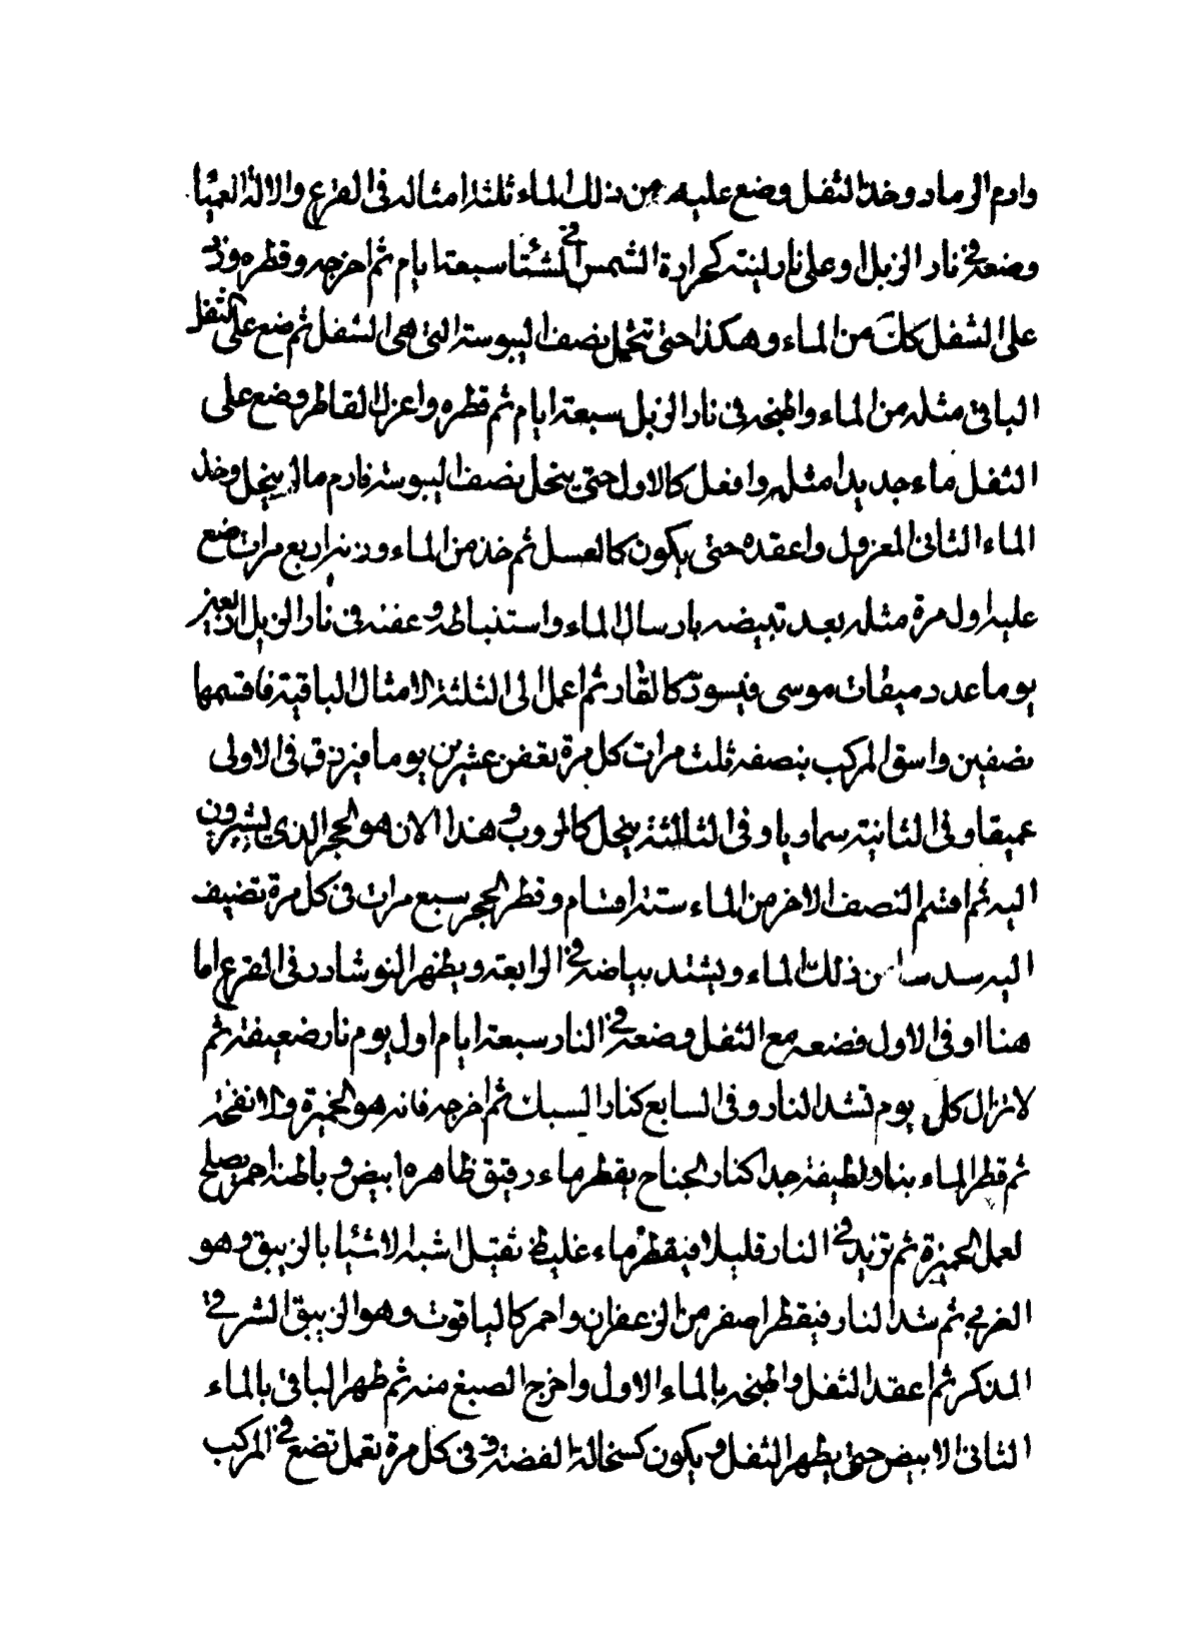 وارم الرماد وخذ الثفل وضع عليه من ذلك الماء ثلثة امثاله فى القرع والالة العميا
وضعه فى نار الزبل او على نار لينة كحرارة الشمس فى الشتا سبعة ايام ثم اخرجه وقطره ورد
على الثفل كل من الماء وهكذا حتى تنحل نصف اليبوسة التى هى الثفل ثم ضع على الثفل
الباقى مثله من الماء واطبخه فى نار الزبل سبعة ايام ثم قطره واعزل القاطر وضع على
الثفل ماء جديدا مثله وافعل كالاول حتى ينحل نصف اليبوسة فارم مالم ينحل وخذ
الماء الثانى المعزول واعقده حتى يكون كالعسل ثم خذ من الماء وزنه اربع مرات ضع
عليه اول مرة مثله بعد تبيضه بارسال الماء واستنباطه وعفنه فى نار الزبل اربعين
يوما عدد ميقات موسى فيسود كالقار ثم اعمل الى الثلثة الامثال الباقية فاقسمها
نصفين واسق المركب بنصفه ثلث مرات كل مرة تعفن عشرين يوما فيزرق فى الاولى
عميقا وفى الثانية سماويا وفى الثالثة ينحل كالروب وهذا الان هو الحجر الذى يشيرون
اليه ثم اقسم النصف الاخر من الماء ستة اقسام وقطر الحجر سبع مرات فى كل مرة تضيف
اليه سدسا من ذلك الماء ويشتد بياضه فى الرابعة ويظهر النوشادر فى القرع اما
هنا او فى الاول فضعه مع الثفل وضعه فى النار سبعة ايام اول يوم نار ضعيفة ثم
لاتزال كل يوم تشد النار وفى السابع كنار السبك ثم اخرجه فانه هو الخميرة والانفحة
ثم قطر الماء بنار لطيفة جدا كنار الجناح يقطر ماء رقيق ظاهره ابيض وباطنه احمر يصلح
لعمل الخميرة ثم تزيد فى النار قليلا فيقطر ماء غليظ ثقيل اشبه الاشيا بالزيبق وهو
الغربى ثم شد النار فيقطر اصفر من الزعفران واحمر كالياقوت وهو الزيبق الشرقى
المذكر ثم اعقد الثفل واطبخه بالماء الاول واخرج الصبغ منه ثم طهر الباقى بالماء
الثانى الابيض حتى يطهر الثفل ويكون كسحالة الفضة وفى كل مرة تعمل تضع فى المركب